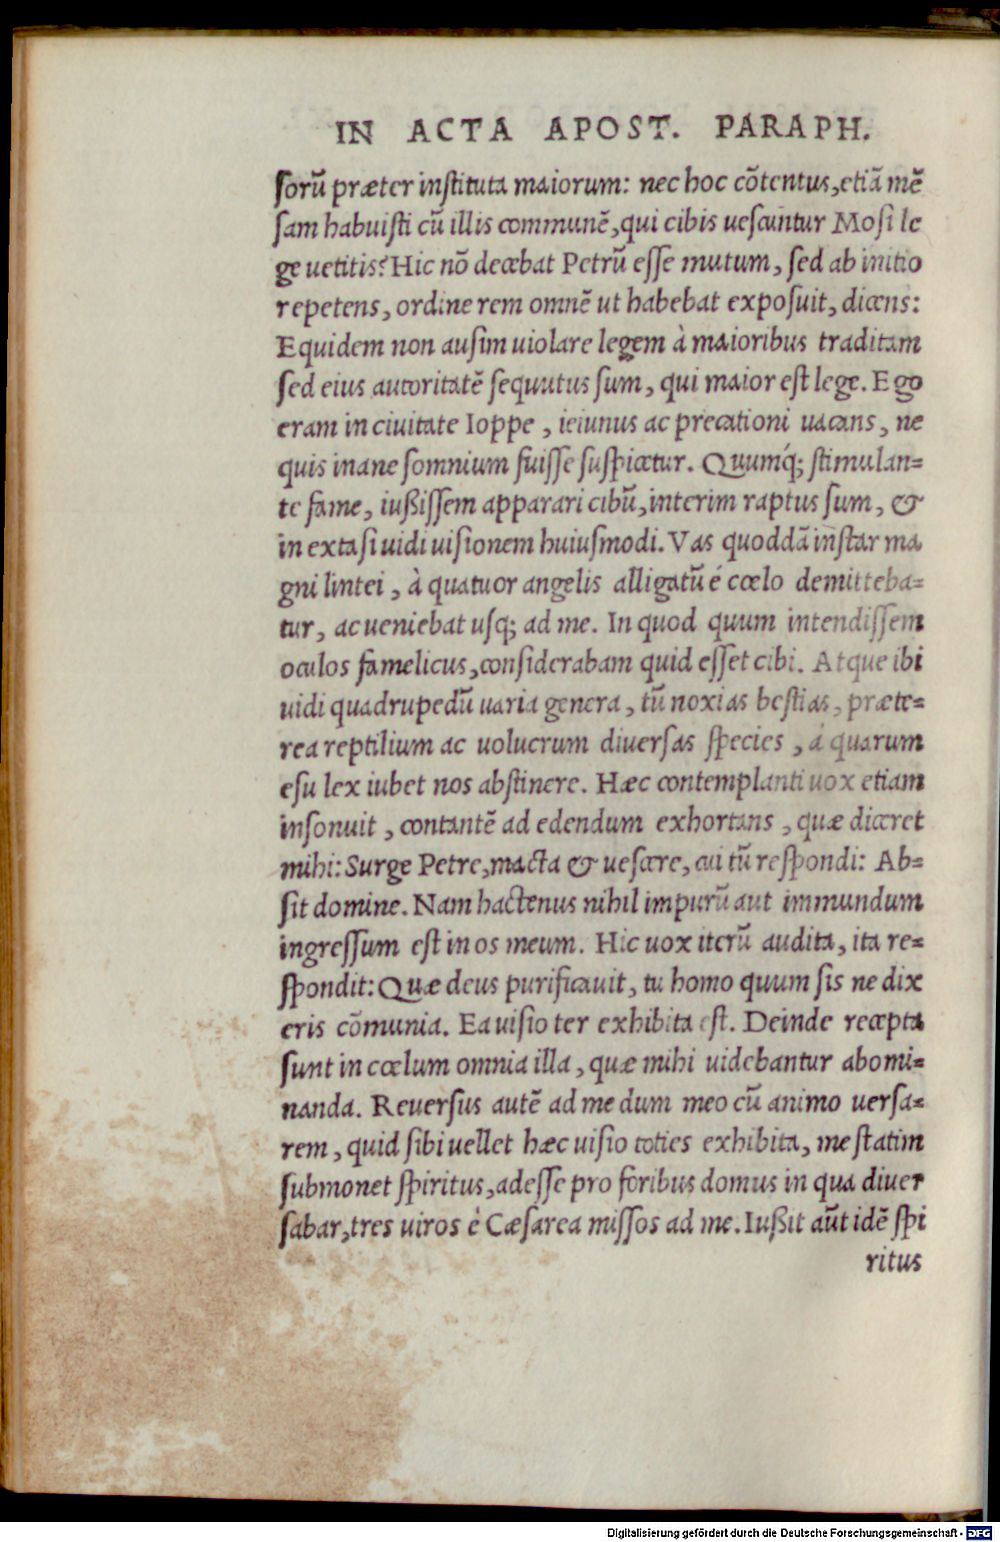 IN ACTA APOST. PARAPH.
ſorũ præter inſtituta maiorum: nec hoc cõtentus, etiã mẽ
ſam habuiſti cũ illis communẽ, qui cibis ueſcuntur Moſi le
ge uetitis? Hic nõ decebat Petrũ eſſe mutum, ſed ab initio
repetens, ordine rem omnẽ ut habebat expoſuit, dicens:
Equidem non auſim uiolare legem à maioribus traditam
ſed eius autoritatẽ ſequutus ſum, qui maior eſt lege. Ego
eram in ciuitate Ioppe, ieiunus ac precationi uacans, ne
quis inane ſomnium fuiſſe ſuſpicetur. Quumq́; ſtimulan=
te fame, iußiſſem apparari cibũ, interim raptus ſum, &
in extaſi uidi uiſionem huiuſmodi. Vas quoddã inſtar ma
gni lintei, à quatuor angelis alligatũ é cœlo demitteba=
tur, ac ueniebat uſq; ad me. In quod quum intendiſſem
oculos famelicus, conſiderabam quid eſſet cibi. Atque ibi
uidi quadrupedũ uaria genera, tũ noxias beſtias, præte=
rea reptilium ac uolucrum diuerſas ſpecies, á quarum
eſu lex iubet nos abſtinere. Hæc contemplanti uox etiam
inſonuit, contantẽ ad edendum exhortans, quæ diceret
mihi: Surge Petre, macta & ueſcere, cui tũ reſpondi: Ab=
ſit domine. Nam hactenus nihil impurũ aut immundum
ingreſſum eſt in os meum. Hic uox iterũ audita, ita re=
ſpondit: Quæ deus purificauit, tu homo quum ſis ne dix
eris cõmunia. Ea uiſio ter exhibita eſt. Deinde recepta
ſunt in cœlum omnia illa, quæ mihi uidebantur abomi=
nanda. Reuerſus autẽ ad me dum meo cũ animo uerſa=
rem, quid ſibi uellet hæc uiſio toties exhibita, me ſtatim
ſubmonet ſpiritus, adeſſe pro foribus domus in qua diuer
ſabar, tres uiros è Cæſarea miſſos ad me. Iußit aũt idẽ ſpi
ritus
Digitalisierung gefördert durch die Deutsche Forschungsgemeinschaft - DFG